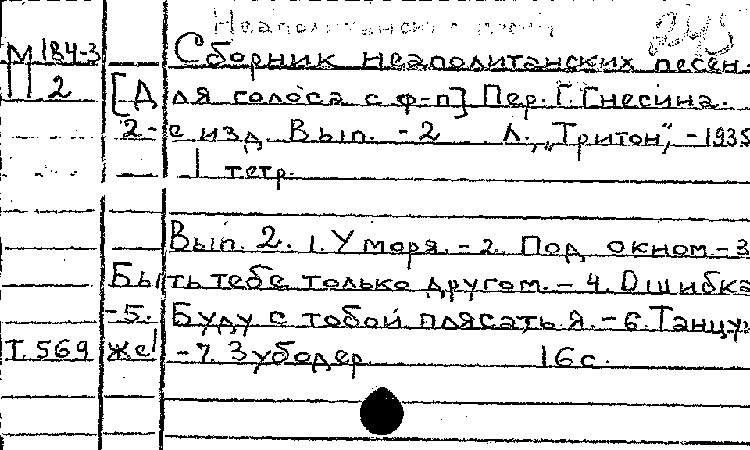 Неаполитанск песни 243
М 184-3 Сборник неаполитанских песен.
П 2 [Для голоса с ф-п] Пер. Г. Гнесина.
2-е изд. Вып. - 2 Л., „Тритон", - 1935
1 тетр.
Вып. 2. 1. У моря. - 2. Под окном - 3
Быть тебе только другом. - 4. Ошибка
- 5. Буду с тобой плясать я. - 6. Танцуй
Т. 569 же! - 7. Зубодер 16 с.